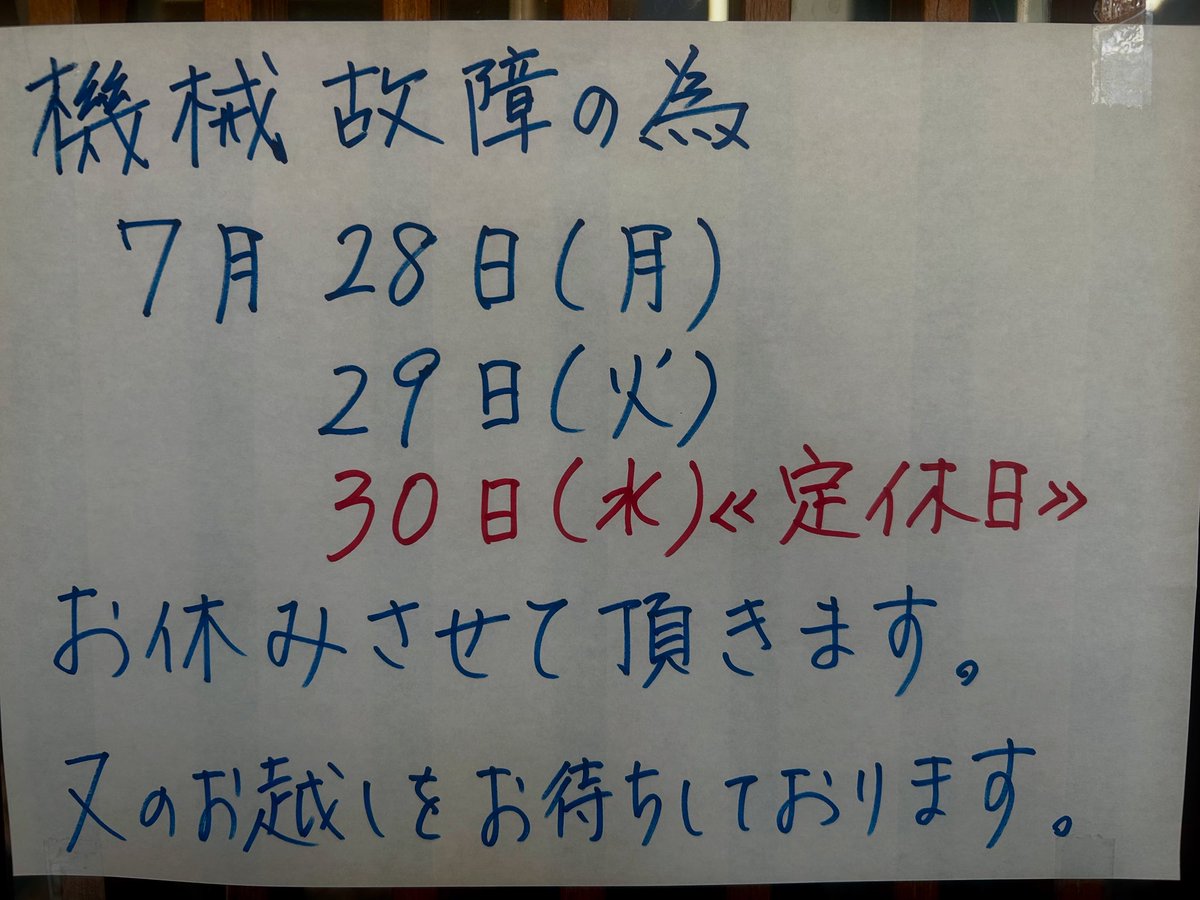 機械故障の為
7月 28日(月)
29日(火)
30日(水)《定休日》
お休みさせて頂きます。
又のお越しをお待ちしております。